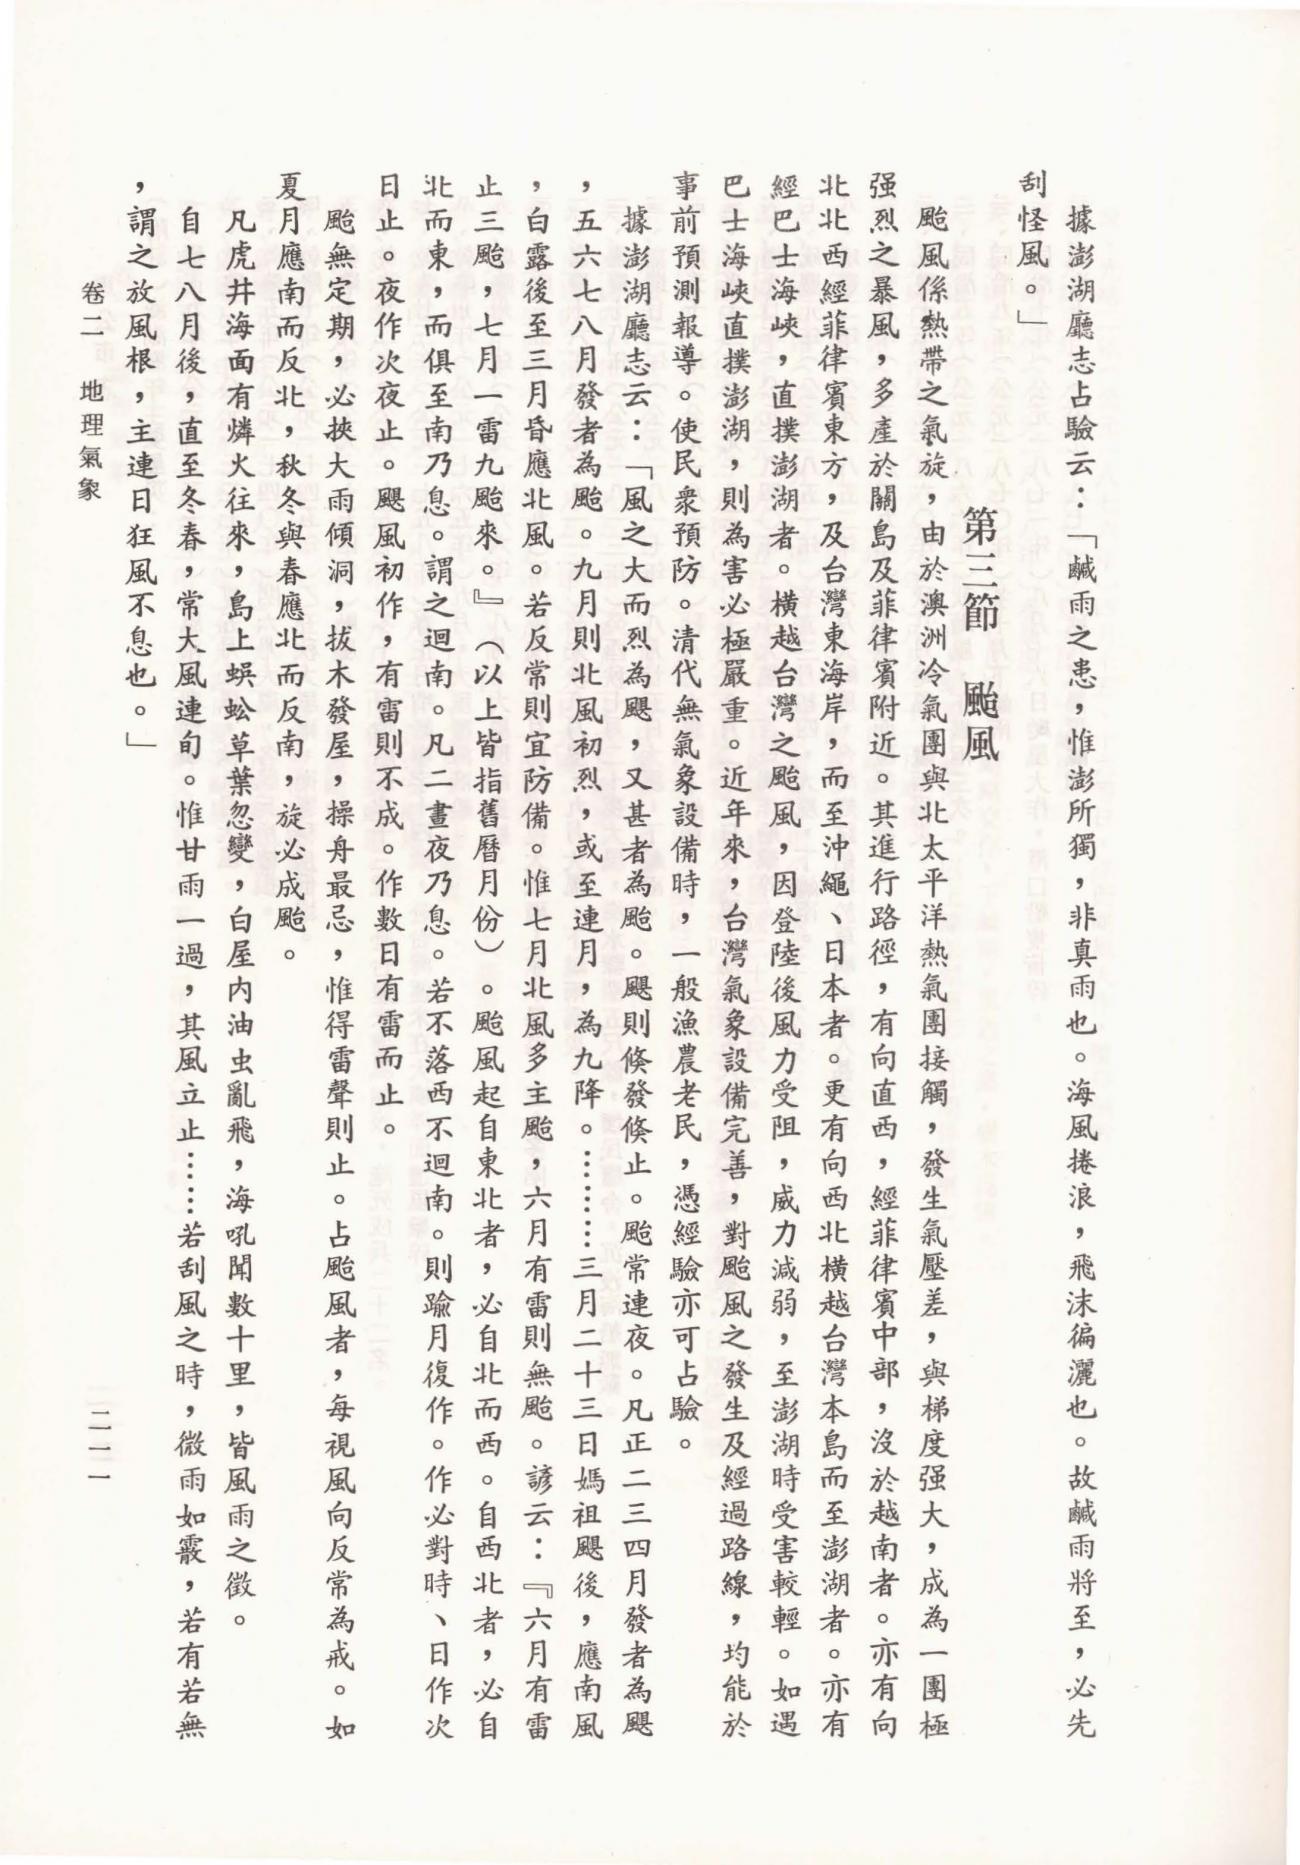 據澎湖廳志占驗云：「鹹雨之患，惟澎所獨，非真雨也。海風捲浪，飛沫徧灑也。故鹹雨將至，必先
刮怪風。」
第三節　颱風
颱風係熱帶之氣旋，由於澳洲冷氣團與北太平洋熱氣團接觸，發生氣壓差，與梯度强大，成為一團極
强烈之暴風，多產於關島及菲律賓附近。其進行路徑，有向直西，經菲律賓中部，沒於越南者。亦有向
北北西經菲律賓東方，及台灣東海岸，而至沖繩、日本者。更有向西北橫越台灣本島而至澎湖者。亦有
經巴士海峽，直撲澎湖者。橫越台灣之颱風，因登陸後風力受阻，威力減弱，至澎湖時受害較輕。如遇
巴士海峽直撲澎湖，則為害必極嚴重。近年來，台灣氣象設備完善，對颱風之發生及經過路線，均能於
事前預測報導。使民衆預防。清代無氣象設備時，一般漁農老民，憑經驗亦可占驗。
據澎湖廳志云：「風之大而烈為颶，又甚者為颱。颶則倏發倏止。颱常連夜。凡正二三四月發者為颶
，五六七八月發者為颱。九月則北風初烈，或至連月，為九降。………三月二十三日媽祖颶後，應南風
，白露後至三月昏應北風。若反常則宜防備。惟七月北風多主颱，六月有雷則無颱。諺云：『六月有雷
止三颱，七月一雷九颱來。』（以上皆指舊曆月份）。颱風起自東北者，必自北而西。自西北者，必自
北而東，而俱至南乃息。謂之迴南。凡二晝夜乃息。若不落西不迴南。則踰月復作。作必對時、日作次
日止。夜作次夜止。颶風初作，有雷則不成。作數日有雷而止。
颱無定期，必挾大雨傾洞，拔木發屋，操舟最忌，惟得雷聲則止。占颱風者，每視風向反常為戒。如
夏月應南而反北，秋冬與春應北而反南，旋必成颱。
凡虎井海面有燐火往來，島上蜈蚣草葉忽變，白屋内油虫亂飛，海吼聞數十里，皆風雨之徵。
自七八月後，直至冬春，常大風連旬。惟甘雨一過，其風立止……若刮風之時，微雨如霰，若有若無
，謂之放風根，主連日狂風不息也。」
卷二　地理氣象
二一一